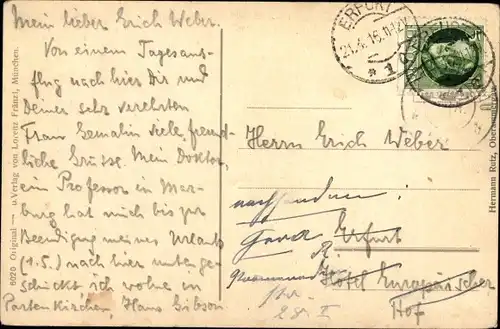 Mein lieber Erich Weber.
Von einem Tagesaus-
flug nach hier Dir und
Deiner sehr verehrten
Frau Gemalin viele freund-
liche Grüsse. Mein Doktor,
ein Professor in Mar-
burg hat mich bis zur
Beendigung meines Urlaubs
(1.5.) nach hier unten ge-
schickt ich wohne in
Partenkirchen, Hans Gibson.
6020 Original — u. Verlag von Lorenz Fränzl, München.
ERFURT
21.4.15.11-12V.
* 1
Herrn Erich Weber
nachsenden:
Gera Erfurt
R.
Hotel Europäischer
Hof
28 I
Hermann Rutz,